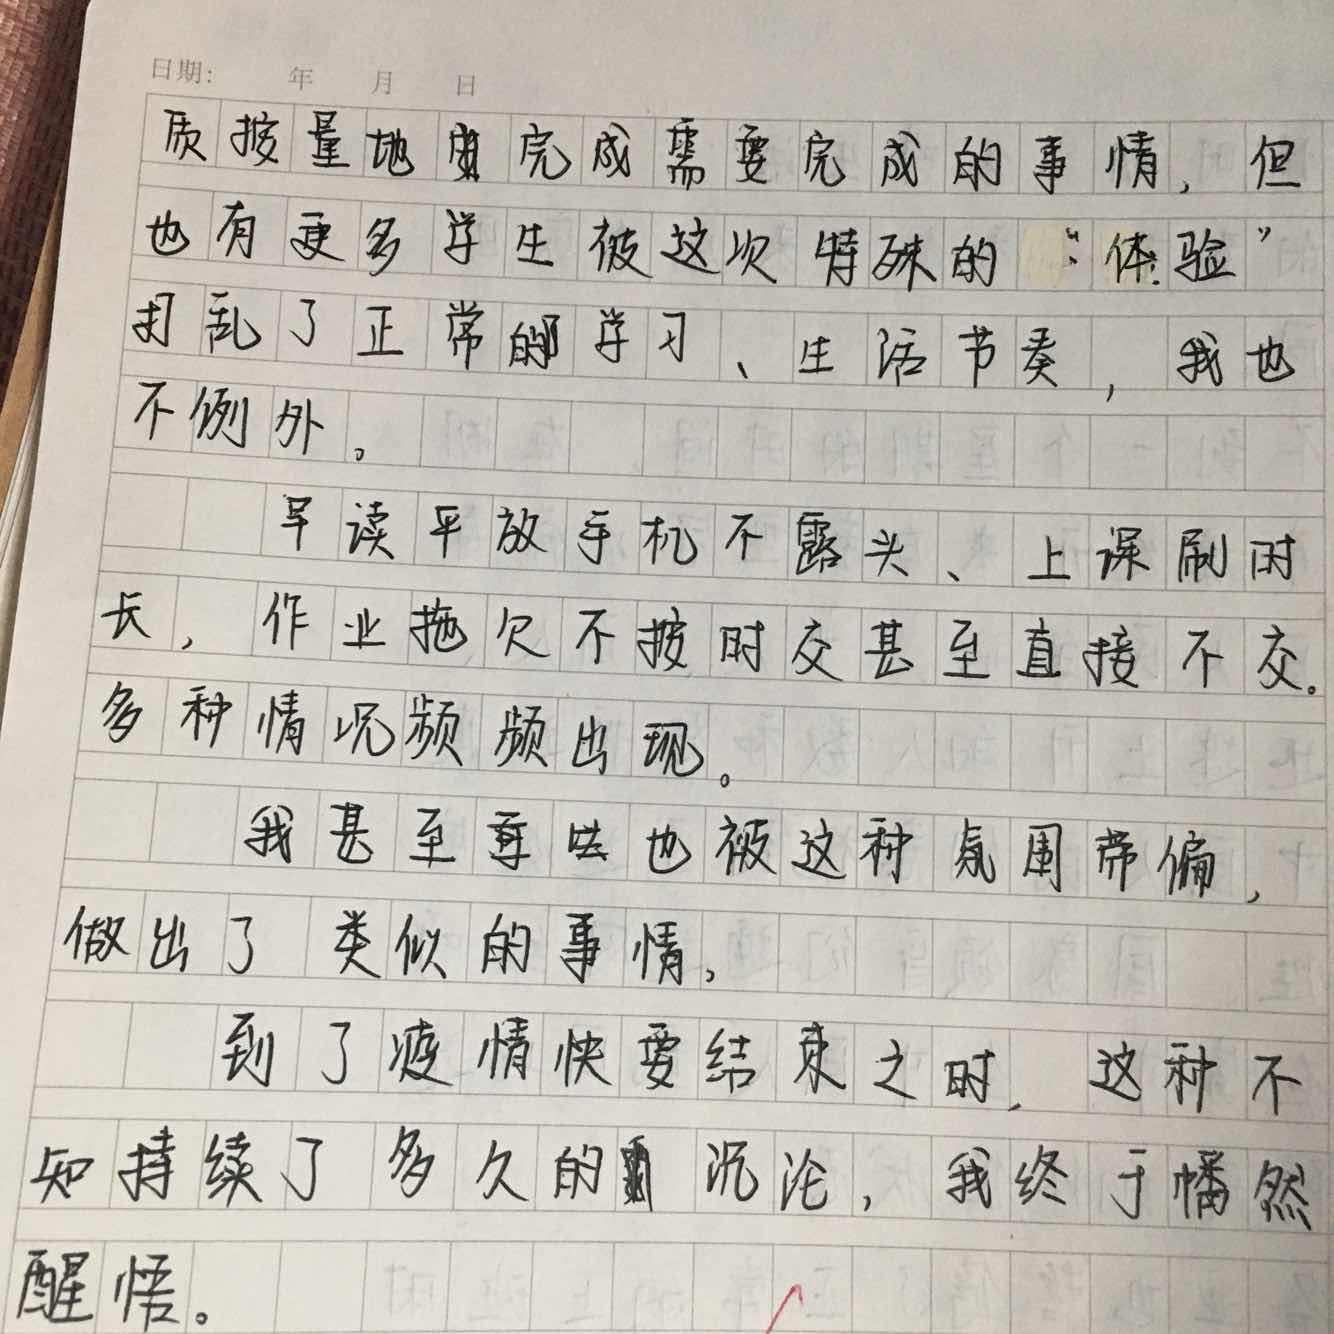 日期: 年 月 日
质按量地完成需要完成的事情,但
也有更多学生被这次特殊的“体验”
打乱了正常的学习、生活节奏,我也
不例外。
早读平放手机不露头、上课刷时
长,作业拖欠不按时交甚至直接不交。
多种情况频频出现。
我甚至也被这种氛围带偏,
做出了类似的事情,
到了疫情快要结束之时,这种不
知持续了多久的沉沦,我终于幡然
醒悟。